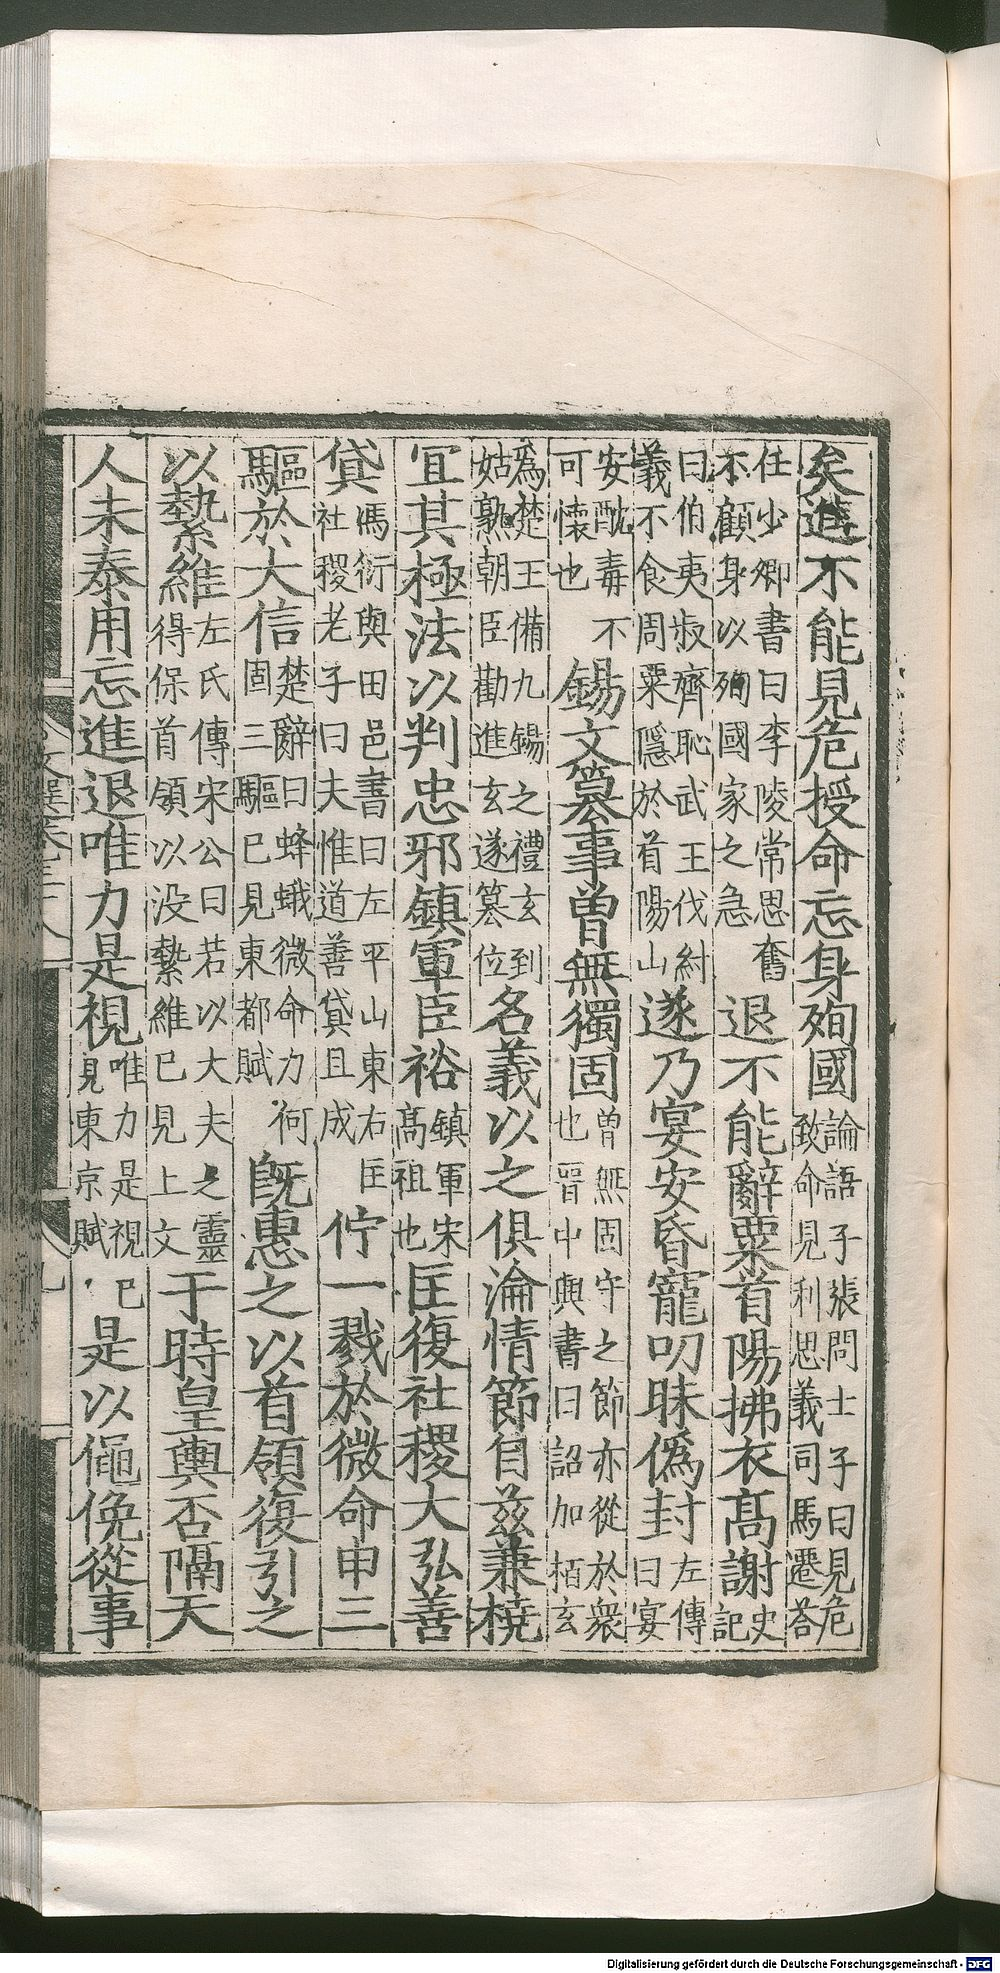 矣進不能見危授命忘身殉國論語子張問士子曰見危致命見利思義司馬遷荅
任少卿書曰李陵常思奮不顧身以殉國家之急退不能辭粟首陽拂衣高謝史記
曰伯夷叔齊恥武王伐紂義不食周粟隱於首陽山遂乃宴安昏寵叨昧僞封左傳曰宴
安酖毒不可懷也錫文篡事曾無獨固曾無固守之節亦從於衆也晉中興書曰詔加栢玄
為楚王備九錫之禮玄到姑熟朝臣勸進玄遂篡位名義以之俱淪情節自兹兼橈
宜其極法以判忠邪鎮軍臣裕鎮軍宋高祖也匡復社稷大弘善
貸馮衍與田邑書曰左平山東右匡社稷老子曰夫惟道善貸且成佇一戮於微命申三
驅於大信楚辭曰蜂蛾微命力何固三驅已見東都賦旣惠之以首領復引之
以縶維左氏傳宋公曰若以大夫之靈得保首領以没縶維已見上文于時皇輿否隔天
人未泰用忘進退唯力是視唯力是視已見東京賦是以僶俛從事
Digitalisierung gefördert durch die Deutsche Forschungsgemeinschaft - DFG